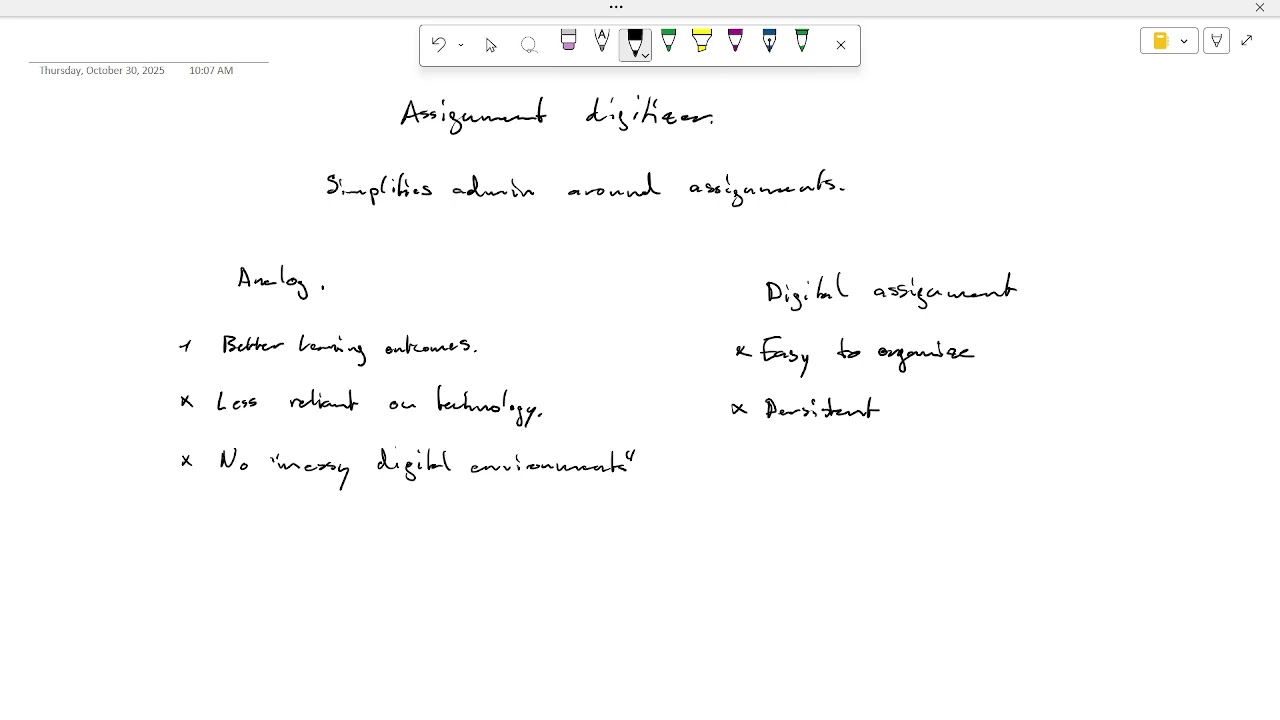 Thursday, October 30, 2025 10:07 AM
Assignment digitizer.
Simplifies admin around assignments.
Analog.
Better learning outcomes.
x Less reliant on technology.
x No "messy digital environments"
Digital assignment
x Easy to organize
x Persistent